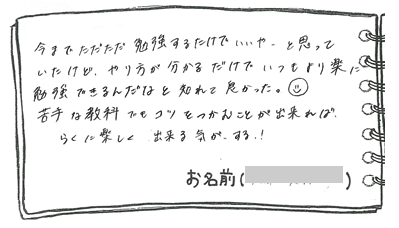 今までただただ勉強するだけでいいやーと思って
いたけど、やり方が分かるだけでいつもより楽に
勉強できるんだなと知れて良かった。
苦手な教科でもコツをつかむことが出来れば、
らくに楽しく出来る気がする!
お名前( )